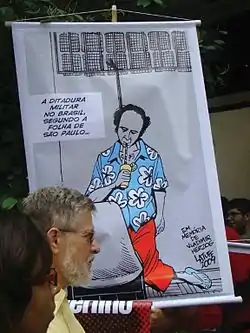 A DITADURA
MILITAR
NO BRASIL,
SEGUNDO A
FOLHA DE
SÃO PAULO...
EM
MEMÓRIA
DE
VLADIMIR
HERZOG
LATUFF
2009